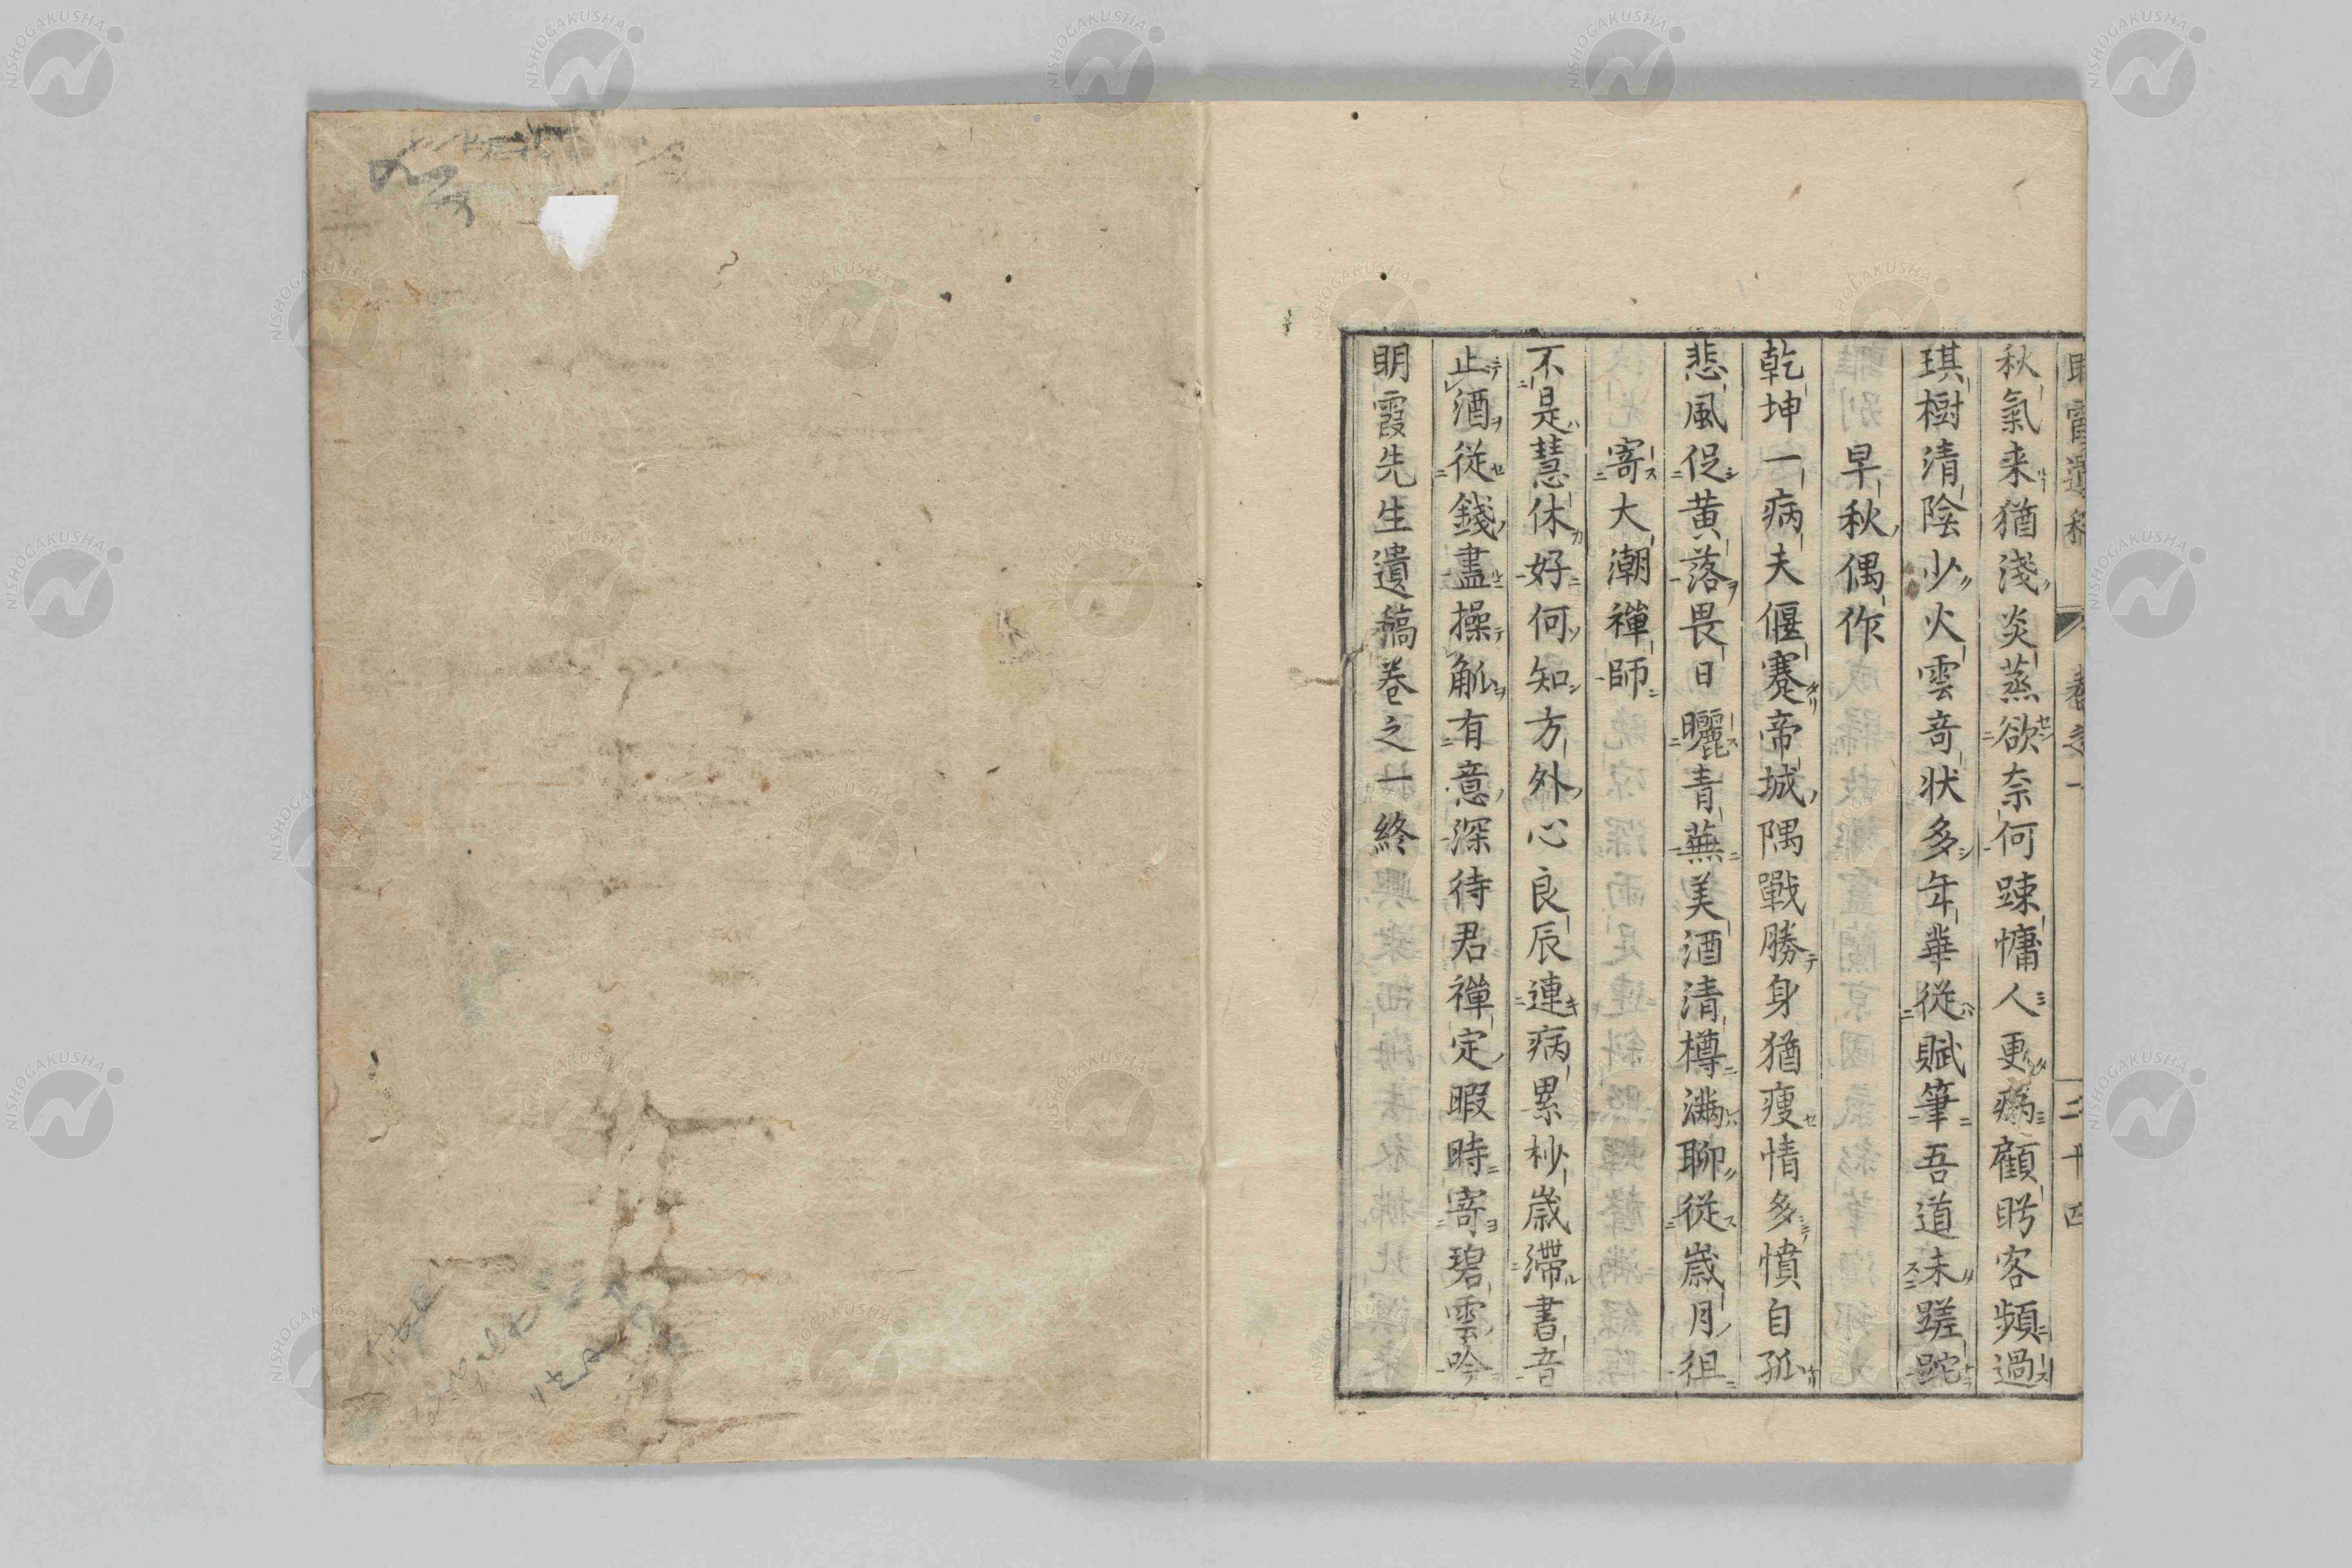 秋氣来猶淺炎蒸欲奈何踈慵人更病顧眄客頻過
琪樹清陰少火雲奇状多年華從賦筆吾道未蹉跎
早秋偶作
乾坤一病夫偃蹇帝城隅戰勝身猶瘦情多憤自孤
悲風促黄落畏日曬青蕪美酒清樽満聊從歳月徂
寄大潮禪師
不是慧休好何知方外心良辰連病累杪歳滯書音
止酒從錢盡操觚有意深待君禪定暇時寄碧雲吟
明霞先生遺稿卷之一終